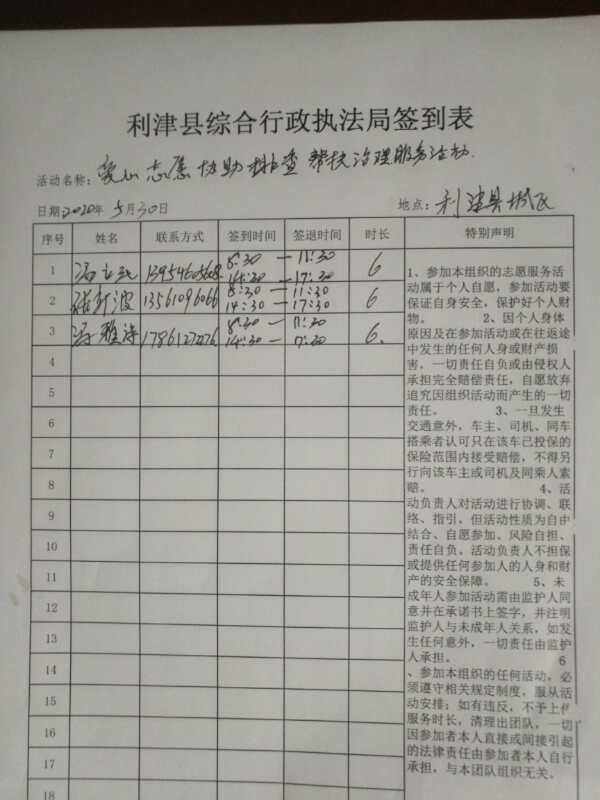 利津县综合行政执法局签到表
活动名称：爱心志愿协助排查帮扶治理服务活动.
日期2020年5月30日 地点：利津县城区
序号 姓名 联系方式 签到时间 签退时间 时长 特别声明
1 8:30 — 11:30 6
14:30 — 17:30
2 13561096066 8:30 — 11:30 6
14:30 — 17:30
3 冯雅涛 8:30 — 11:30 6.
14:30 — 17:30
4
5
6
7
8
9
10
11
12
13
14
15
16
17
18
1、参加本组织的志愿服务活
动属于个人自愿，参加活动要
保证自身安全，保护好个人财
物。 2、因个人身体
原因及在参加活动或在往返途
中发生的任何人身或财产损
害，一切责任自负或由侵权人
承担完全赔偿责任，自愿放弃
追究因组织活动而产生的一切
责任。 3、一旦发生
交通意外，车主、司机、同车
搭乘者认可只在该车已投保的
保险范围内接受赔偿，不得另
行向该车主或司机及同乘人索
赔。 4、活
动负责人对活动进行协调、联
络、指引，但活动性质为自由
结合、自愿参加、风险自担、
责任自负，活动负责人不担保
或提供任何参加人的人身和财
产的安全保障。 5、未
成年人参加活动需由监护人同
意并在承诺书上签字，并注明
监护人与未成年人关系，如发
生任何意外，一切责任由监护
人承担。 6
、参加本组织的任何活动，必
须遵守相关规定制度，服从活
动安排；如有违反，不予上传
服务时长，清理出团队，一切
因参加者本人直接或间接引起
的法律责任由参加者本人自行
承担，与本团队组织无关。